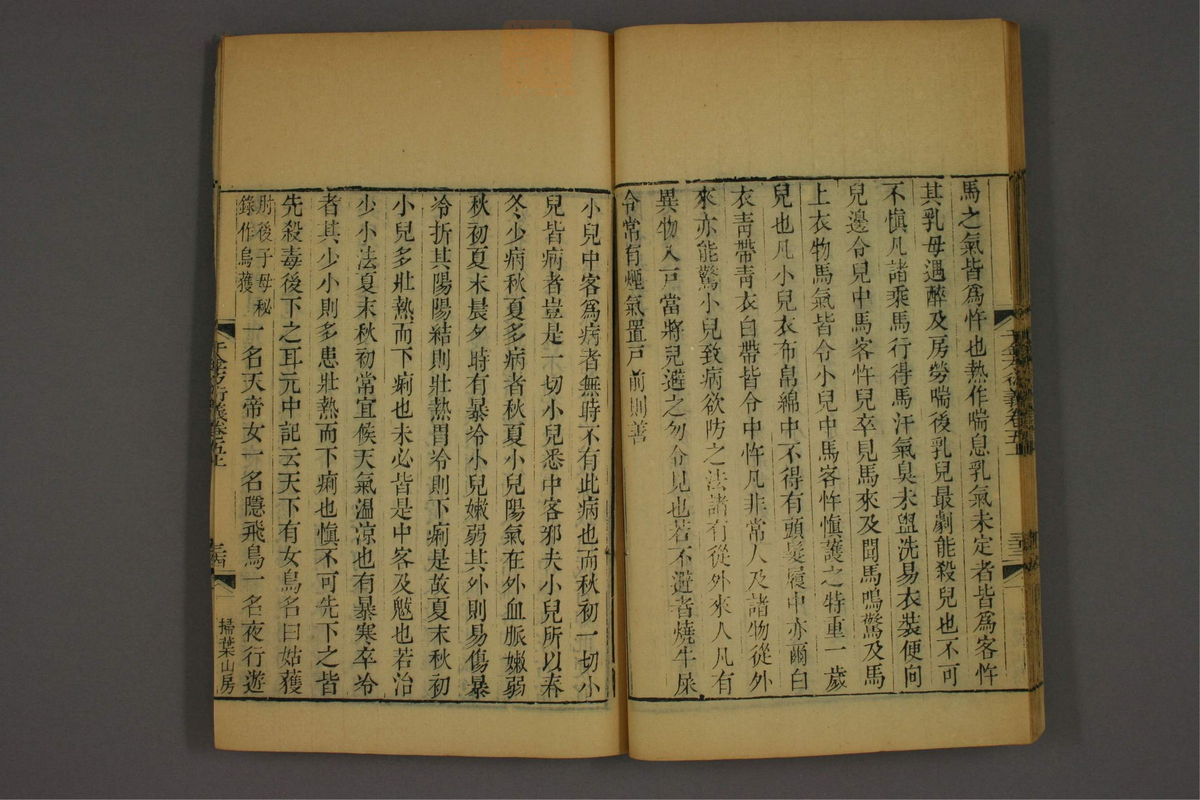 馬之氣皆爲忤也熱作喘息乳氣未定者皆爲客忤
其乳母遇醉及房勞喘後乳兒最劇能殺兒也不可
不愼凡諸乘馬行得馬汗氣臭未盥洗易衣裝便向
兒邊令兒中馬客忤兒卒見馬來及聞馬鳴驚及馬
上衣物馬氣皆令小兒中馬客忤愼護之特重一歲
兒也凡小兒衣布帛綿中不得有頭髮履中亦爾白
衣靑帶靑衣白帶皆令中忤凡非常人及諸物從外
來亦能驚小兒致病欲防之法諸有從外來人凡有
異物入戸當將兒避之勿令見也若不避者燒牛屎
令常有煙氣置戸前則善
小兒中客爲病者無時不有此病也而秋初一切小
兒皆病者豈是一切小兒悉中客邪夫小兒所以春
冬少病秋夏多病者秋夏小兒陽氣在外血脈嫩弱
秋初夏末晨夕時有暴冷小兒嫩弱其外則易傷暴
冷折其陽陽結則壯熱胃冷則下痢是故夏末秋初
小兒多壯熱而下痢也未必皆是中客及鬾也若治
少小法夏末秋初常宜候天氣溫涼也有暴寒卒冷
者其少小則多患壯熱而下痢也愼不可先下之皆
先殺毒後下之耳元中記云天下有女鳥名曰姑獲
肘後子母秘
錄作烏獲
一名天帝女一名隱飛鳥一名夜行遊
千金方衍義卷五上
掃葉山房